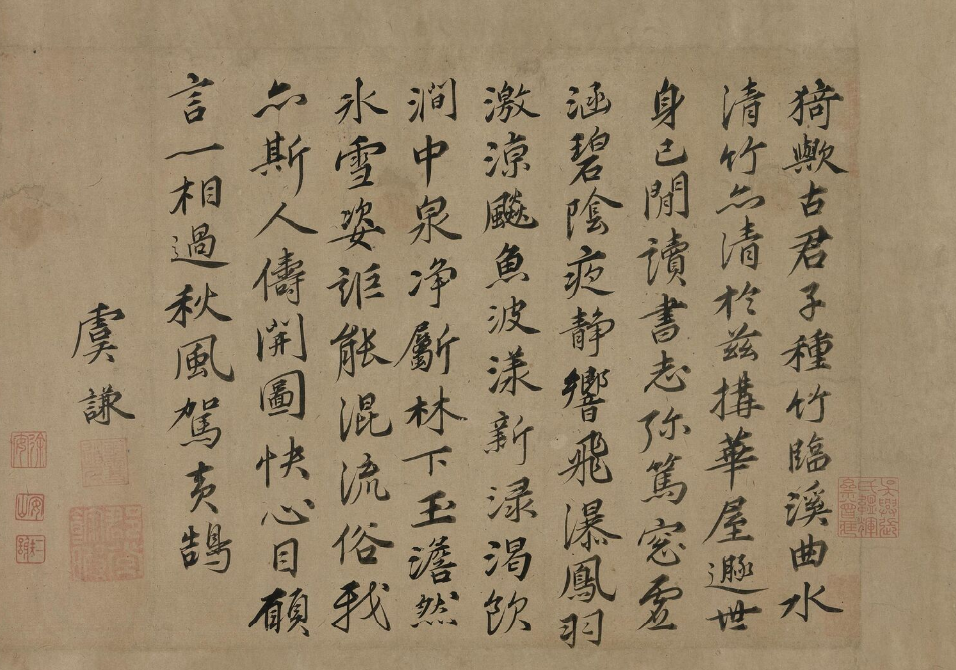 猗歟古君子種竹臨溪曲水
清竹亦清於茲搆華屋遯世
身已閒讀書志弥篤窓虛
涵碧陰夜静響飛瀑鳳羽
激涼飈魚波漾新淥渴飲
澗中泉净斸林下玉澹然
氷雪姿詎能混流俗我
亦斯人儔開圖快心目願
言一相過秋風駕黃鵠
虞謙